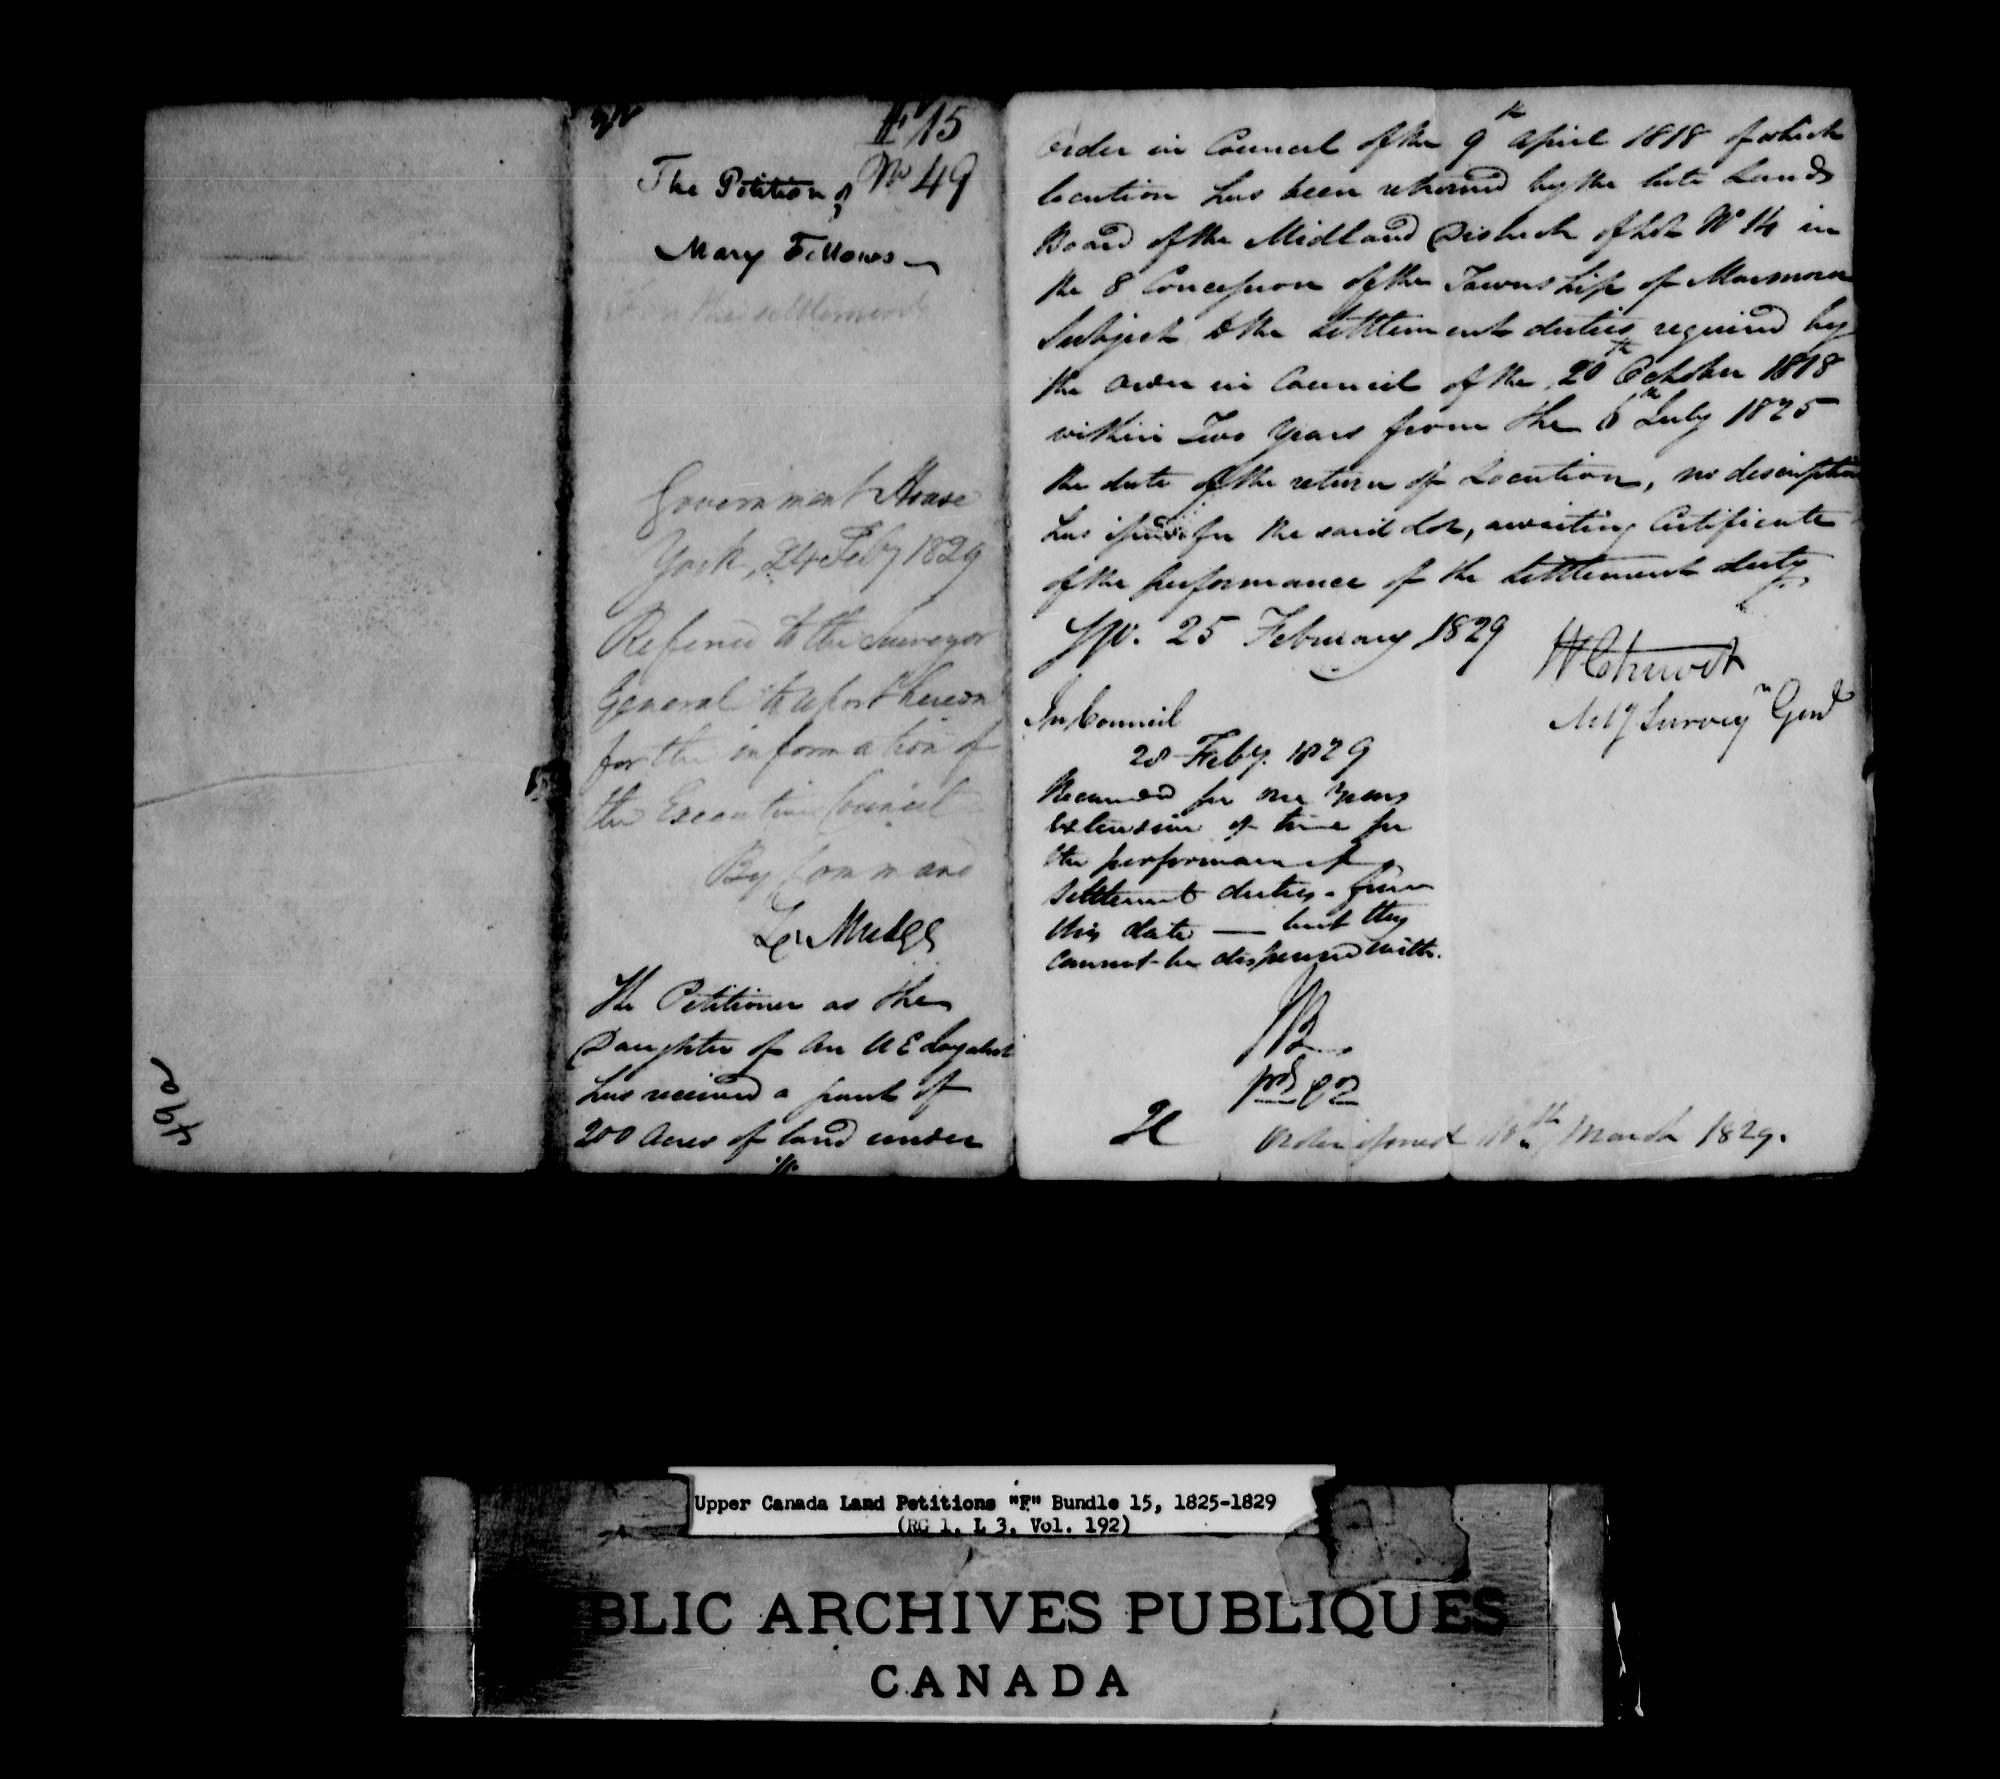 F 15
No 49
The Petition of
Mary Fellows
the settlement
Government House
York, 24 Feby 1829
Referred to the Surveyor
General to report hereon
for the information of
the Executive Council
By Command
Z Mudge
The Petitioner as the
Daughter of an UE Loyalist
has received a grant of
200 Acres of land under
Order in Council of the 9th April 1818 of which
location has been returned by the late Land
Board of the Midland District of Lot No 14 in
the 8 Concession of the Township of Marmora
Subject to the settlement duties required by
the Order in Council of the 20th October 1818
within Two Years from the 6th July 1825
the date of the return of Location, no description
has issued for the said Lot, awaiting Certificate
of the performance of the settlement duty
SGO. 25 February 1829
W Chewett
Actg Surveyr Genl
In Council
28 Feby. 1829
Recommended for one Years
extension of time for
the performance of
settlement duties from
this date — but they
cannot be dispensed with.
JB
Order issued 10th March 1829.
49a
Upper Canada Land Petitions "F" Bundle 15, 1825-1829
(RG 1, L 3, Vol. 192)
BLIC ARCHIVES PUBLIQUES
CANADA